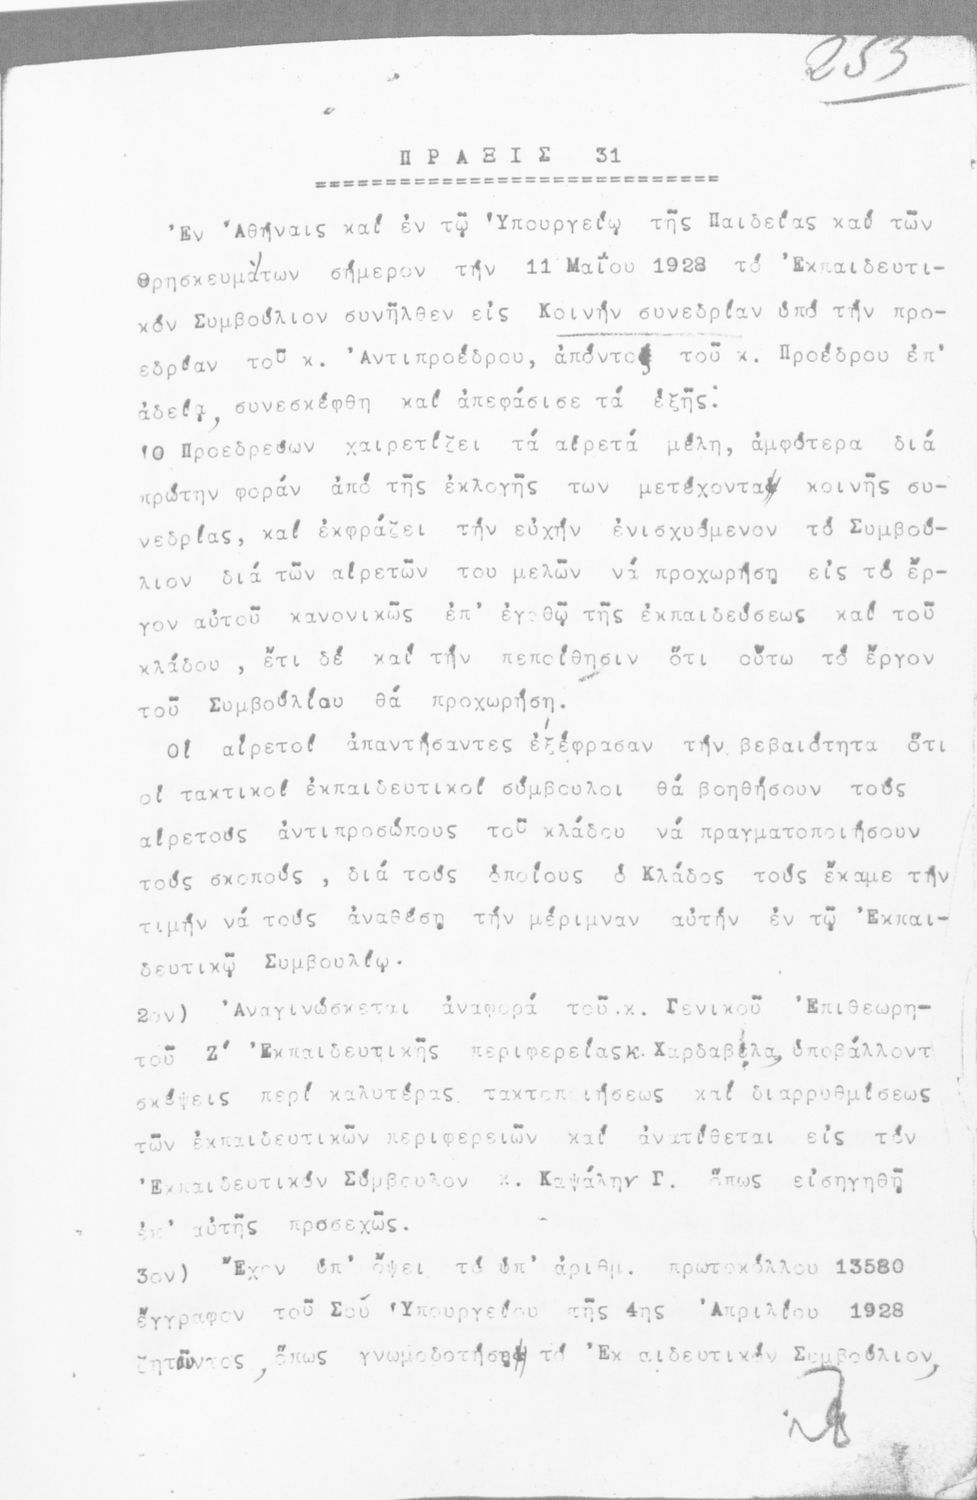 253
ΠΡΑΞΙΣ 31
============================
Ἐν Ἀθήναις καί ἐν τῷ Ὑπουργείῳ τῆς Παιδείας καί τῶν
Θρησκευμάτων σήμερον τήν 11 Μαΐου 1928 τό Ἐκπαιδευτι-
κόν Συμβούλιον συνῆλθεν εἰς Κοινήν συνεδρίαν ὑπό τήν προ-
εδρίαν τοῦ κ. Ἀντιπροέδρου, ἀπόντος τοῦ κ. Προέδρου ἐπ'
ἀδείᾳ, συνεσκέφθη καί ἀπεφάσισε τά ἑξῆς:
Ὁ Προεδρεύων χαιρετίζει τά αἱρετά μέλη, ἀμφότερα διά
πρώτην φοράν ἀπό τῆς ἐκλογῆς των μετέχοντα κοινῆς συ-
νεδρίας, καί ἐκφράζει τήν εὐχήν ἐνισχυόμενον τό Συμβού-
λιον διά τῶν αἱρετῶν του μελῶν νά προχωρήσῃ εἰς τό ἔρ-
γον αὐτοῦ κανονικῶς ἐπ' ἀγαθῷ τῆς ἐκπαιδεύσεως καί τοῦ
κλάδου , ἔτι δέ καί τήν πεποίθησιν ὅτι οὕτω τό ἔργον
τοῦ Συμβουλίου θά προχωρήσῃ.
Οἱ αἱρετοί ἀπαντήσαντες ἐξέφρασαν τήν βεβαιότητα ὅτι
οἱ τακτικοί ἐκπαιδευτικοί σύμβουλοι θά βοηθήσουν τούς
αἱρετούς ἀντιπροσώπους τοῦ κλάδου νά πραγματοποιήσουν
τούς σκοπούς , διά τούς ὁποίους ὁ Κλάδος τούς ἔκαμε τήν
τιμήν νά τούς ἀναθέσῃ τήν μέριμναν αὐτήν ἐν τῷ Ἐκπαι-
δευτικῷ Συμβουλίῳ.
2ον) Ἀναγινώσκεται ἀναφορά τοῦ κ. Γενικοῦ Ἐπιθεωρη-
τοῦ Ζ' Ἐκπαιδευτικῆς περιφερείας κ. Χαρδαβέλα, ὑποβάλλοντ
σκέψεις περί καλυτέρας τακτοποιήσεως καί διαρρυθμίσεως
τῶν ἐκπαιδευτικῶν περιφερειῶν καί ἀνατίθεται εἰς τόν
Ἐκπαιδευτικόν Σύμβουλον κ. Καψάλην Γ. ὅπως εἰσηγηθῇ
ἐπ' αὐτῆς προσεχῶς.
3ον) Ἔχον ὑπ' ὄψει τό ὑπ' ἀριθμ. πρωτοκόλλου 13580
ἔγγραφον τοῦ Σοῦ Ὑπουργείου τῆς 4ης Ἀπριλίου 1928
ζητοῦντος , ὅπως γνωμοδοτήσῃ τό Ἐκ αιδευτικόν Συμβούλιον,